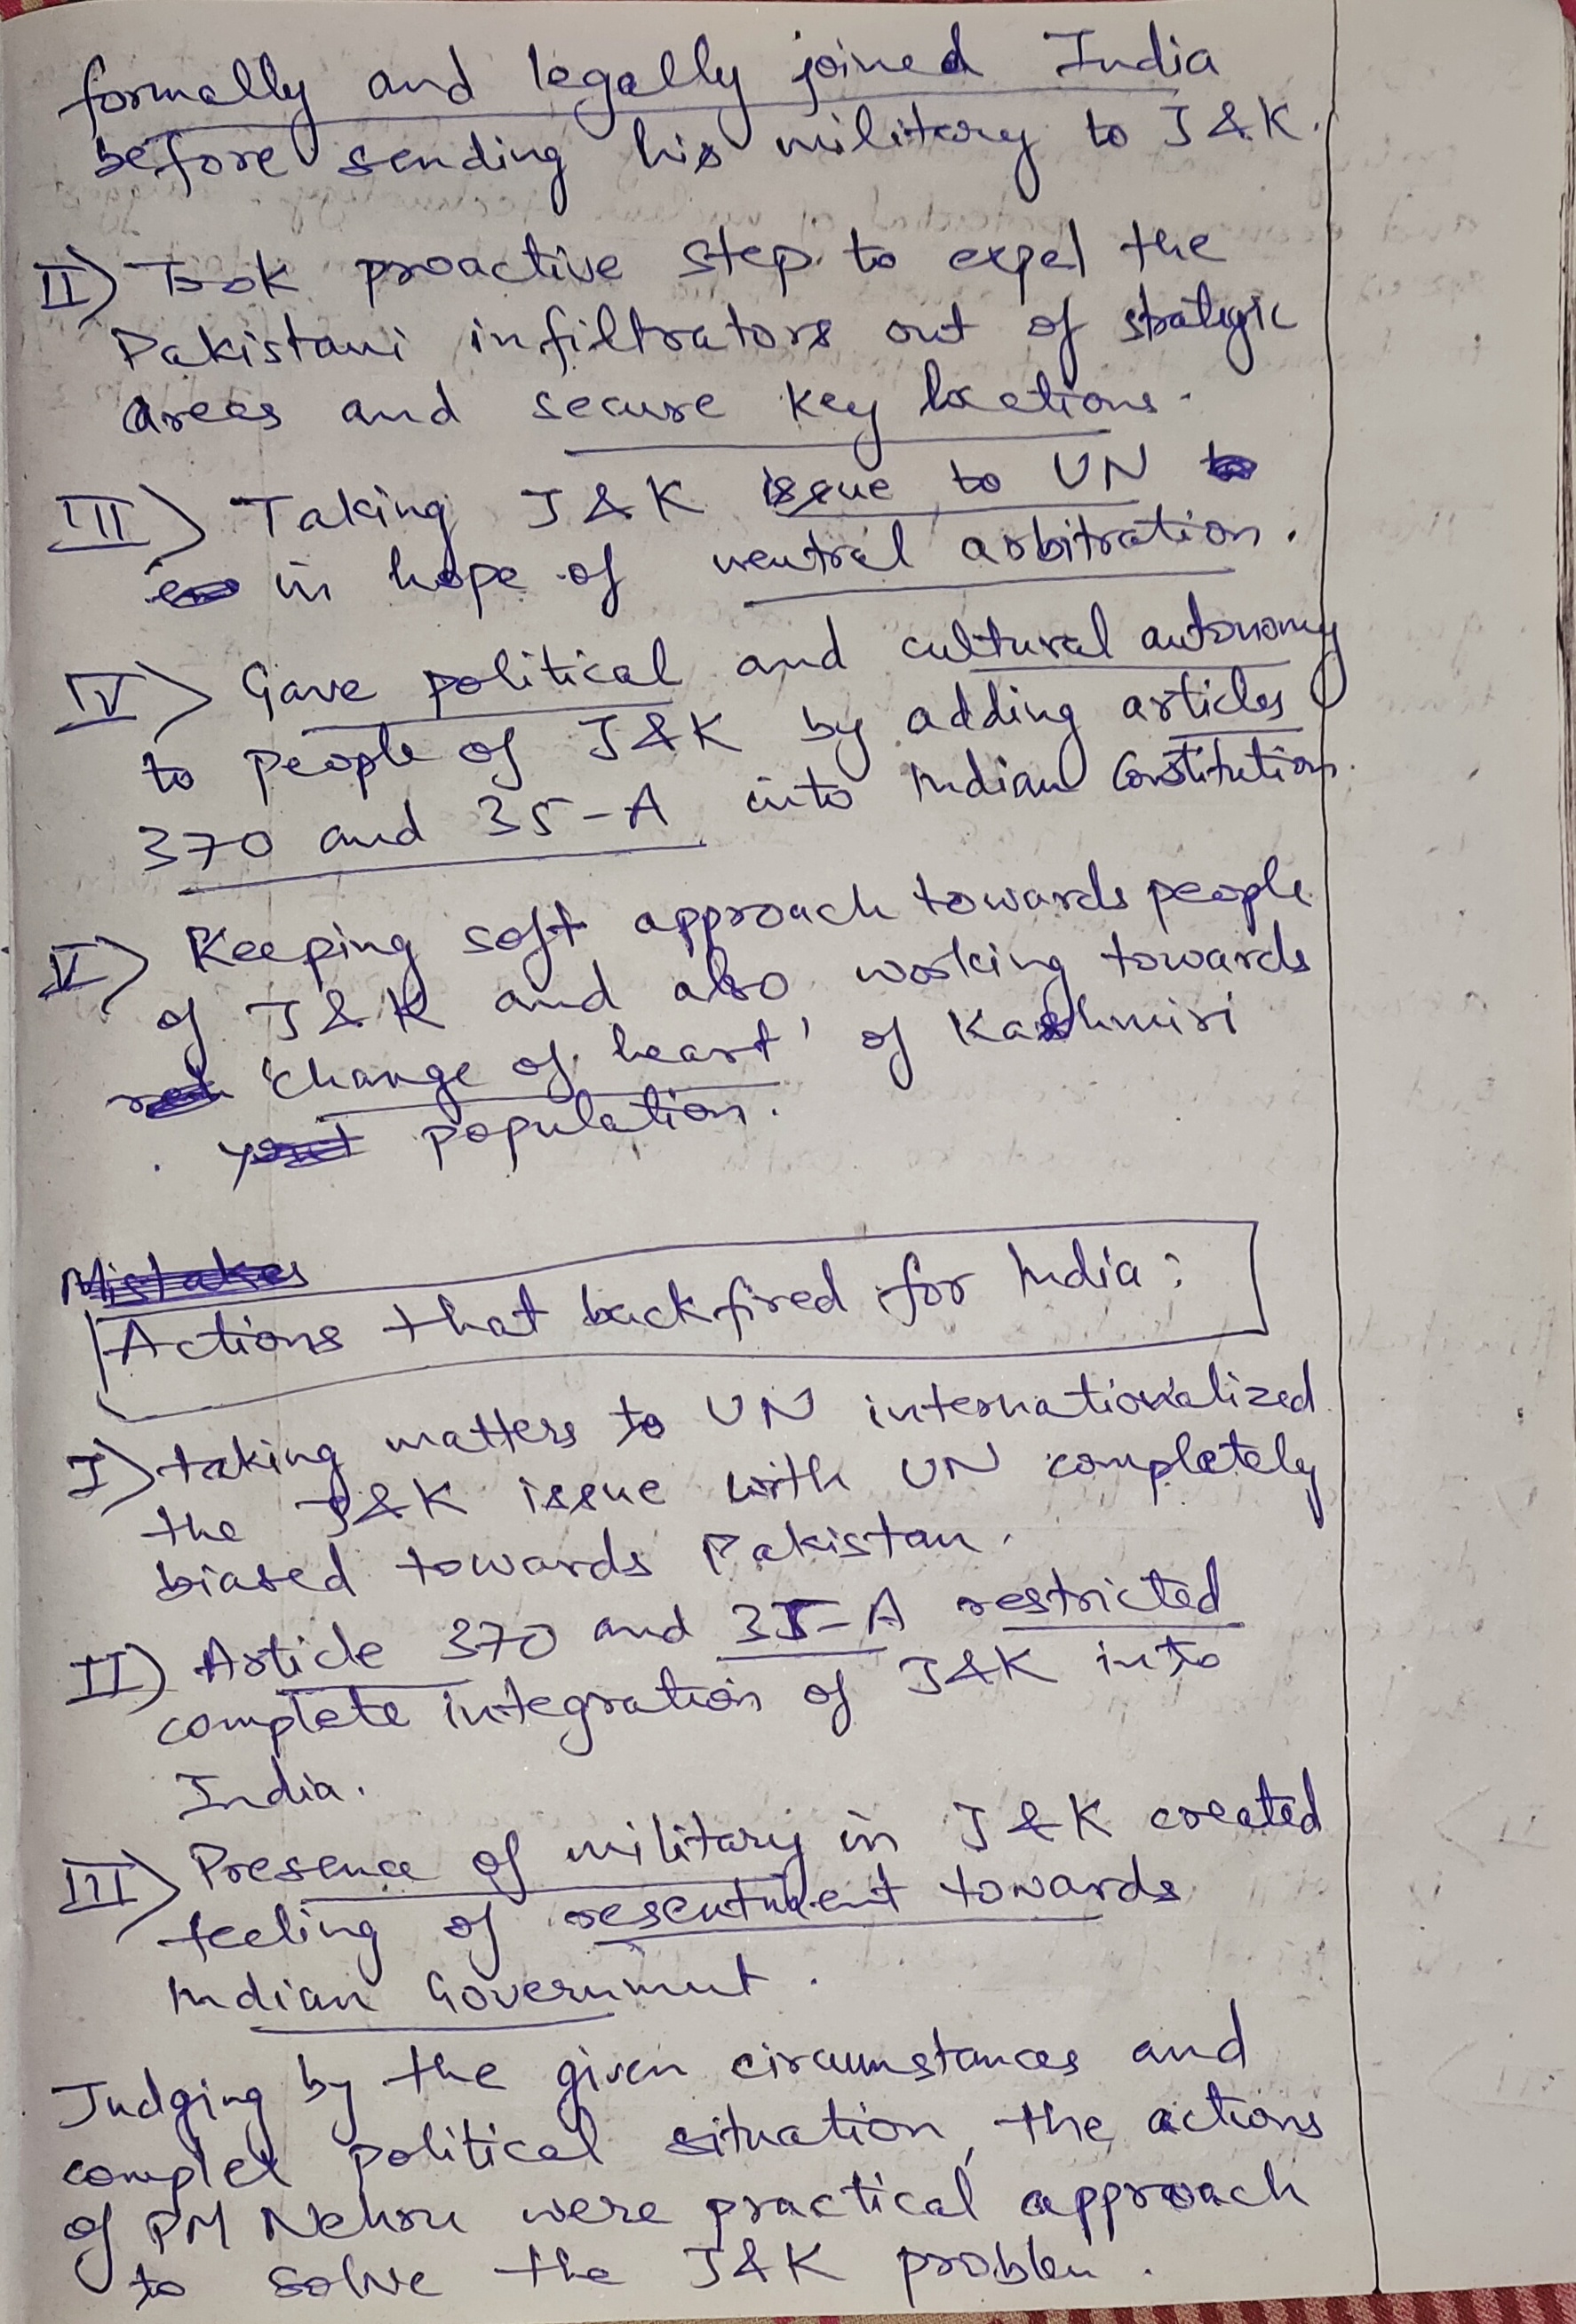 formally and legally joined India
before sending his military to J&K.
II) Took proactive step to expel the
Pakistani infiltrators out of strategic
areas and secure key locations.
III) Taking J&K issue to UN to
in hope of neutral arbitration.
IV) Gave political and cultural autonomy
to people of J&K by adding articles
370 and 35-A into Indian Constitution.
V) Keeping soft approach towards people
of J&K and also working towards
'change of heart' of Kashmiri
population.
Mistakes
Actions that backfired for India:
I) taking matters to UN internationalized
the J&K issue with UN completely
biased towards Pakistan.
II) Article 370 and 35-A restricted
complete integration of J&K into
India.
III) Presence of military in J&K created
feeling of resentment towards
Indian Government.
Judging by the given circumstances and
complex political situation, the actions
of PM Nehru were practical approach
to solve the J&K problem.